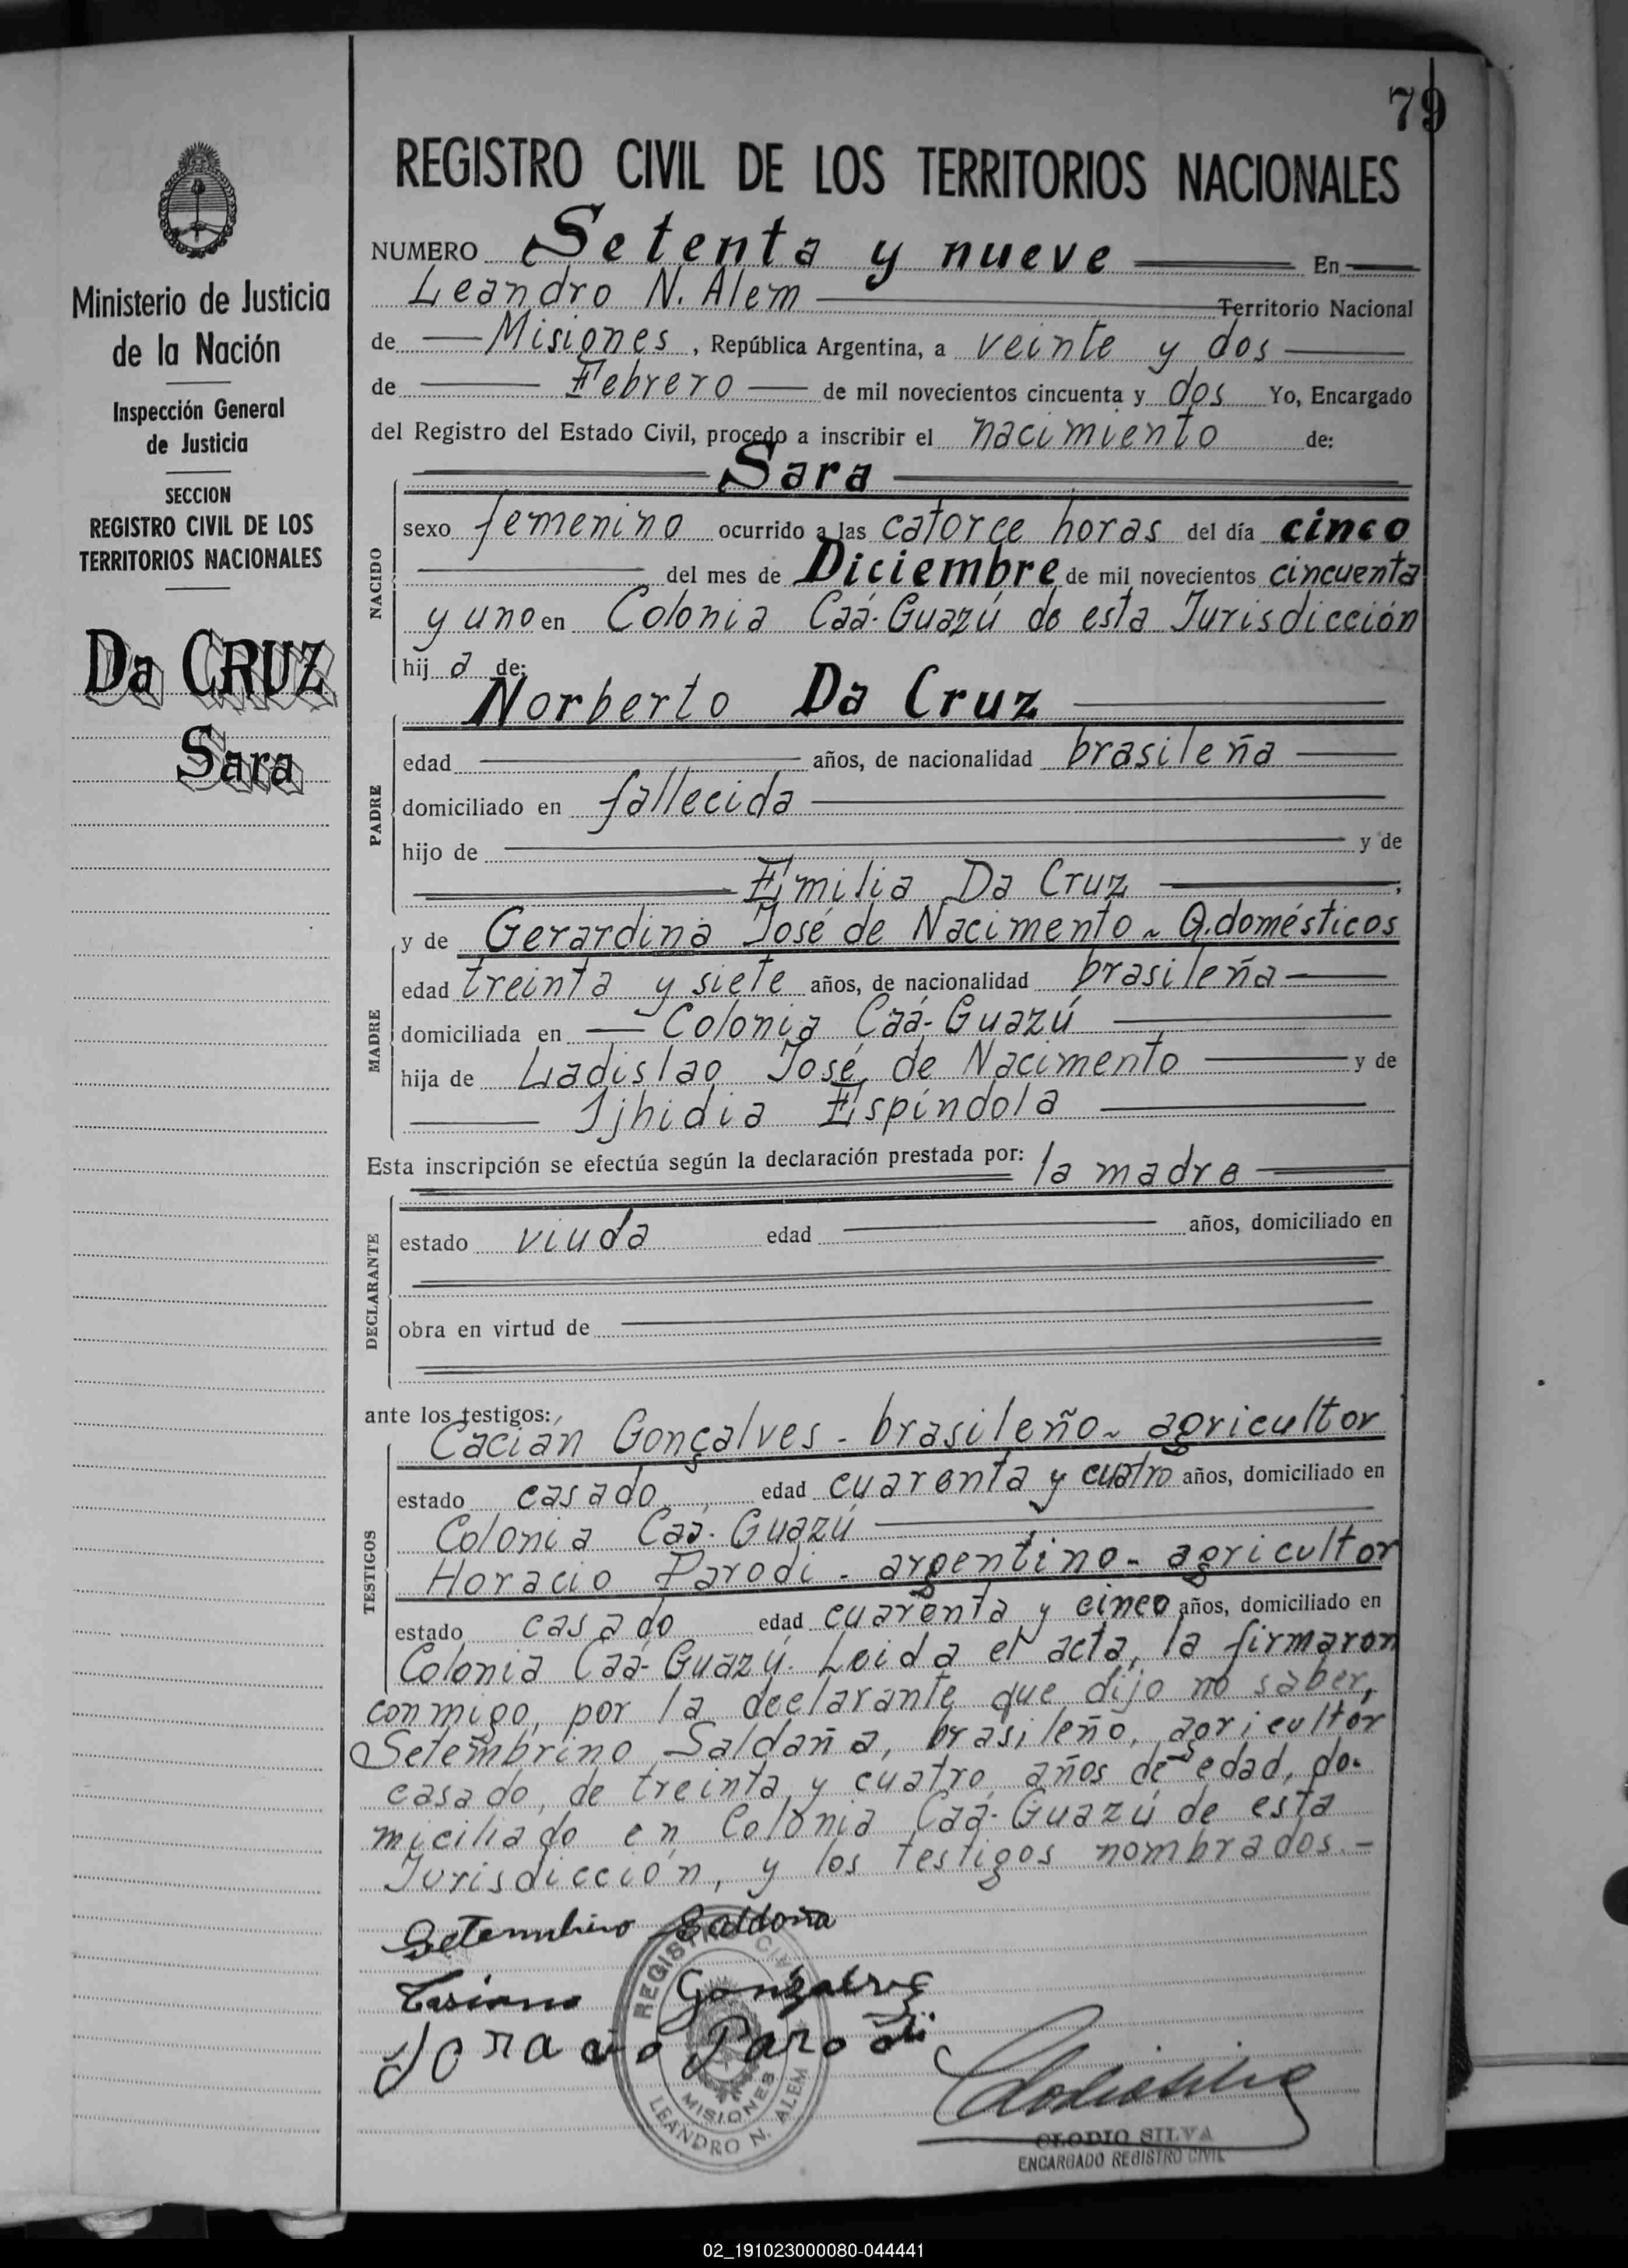 79
REGISTRO CIVIL DE LOS TERRITORIOS NACIONALES
Ministerio de Justicia
de la Nación
Inspección General
de Justicia
SECCION
REGISTRO CIVIL DE LOS
TERRITORIOS NACIONALES
Da CRUZ
Sara
NUMERO Setenta y nueve En
Leandro N. Alem Territorio Nacional
de Misiones, República Argentina, a veinte y dos
de Febrero de mil novecientos cincuenta y dos Yo, Encargado
del Registro del Estado Civil, procedo a inscribir el nacimiento de:
Sara
NACIDO
sexo femenino ocurrido a las catorce horas del día cinco
del mes de Diciembre de mil novecientos cincuenta
y uno en Colonia Caá-Guazú de esta Jurisdicción
hij a de:
Norberto Da Cruz
PADRE
edad años, de nacionalidad brasileña
domiciliado en fallecida
hijo de y de
Emilia Da Cruz,
MADRE
y de Gerardina José de Nacimento - Q. domésticos
edad treinta y siete años, de nacionalidad brasileña
domiciliada en Colonia Caá-Guazú
hija de Ladislao José de Nacimento y de
Ijhidia Espíndola
Esta inscripción se efectúa según la declaración prestada por: la madre
DECLARANTE
estado viuda edad años, domiciliado en
obra en virtud de
ante los testigos:
TESTIGOS
Cacián Gonçalves - brasileño - agricultor
estado casado, edad cuarenta y cuatro años, domiciliado en
Colonia Caá-Guazú
Horacio Parodi - argentino - agricultor
estado casado edad cuarenta y cinco años, domiciliado en
Colonia Caá-Guazú. Leida el acta, la firmaron
conmigo, por la declarante que dijo no saber,
Setembrino Saldaña, brasileño, agricultor
casado, de treinta y cuatro años de edad, do-
miciliado en Colonia Caá-Guazú de esta
Jurisdicción, y los testigos nombrados.-
Setembrino Saldoña
Gonzalves
Horacio Parodi
REGISTRO CIVIL
MISIONES
LEANDRO N. ALEM
CLODIO SILVA
ENCARGADO REGISTRO CIVIL
02_191023000080-044441